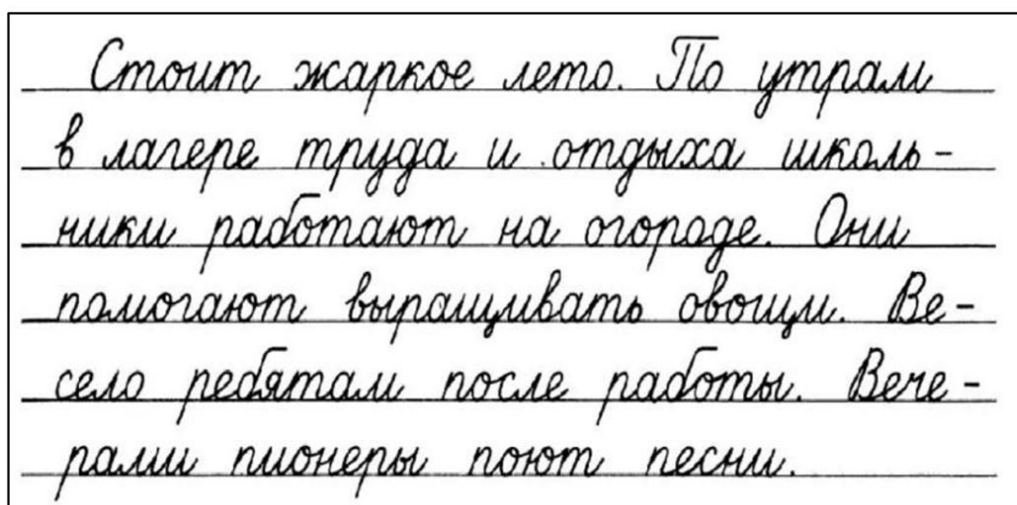 Стоит жаркое лето. По утрам
в лагере труда и отдыха школь-
ники работают на огороде. Они
помогают выращивать овощи. Ве-
село ребятам после работы. Вече-
рами пионеры поют песни.